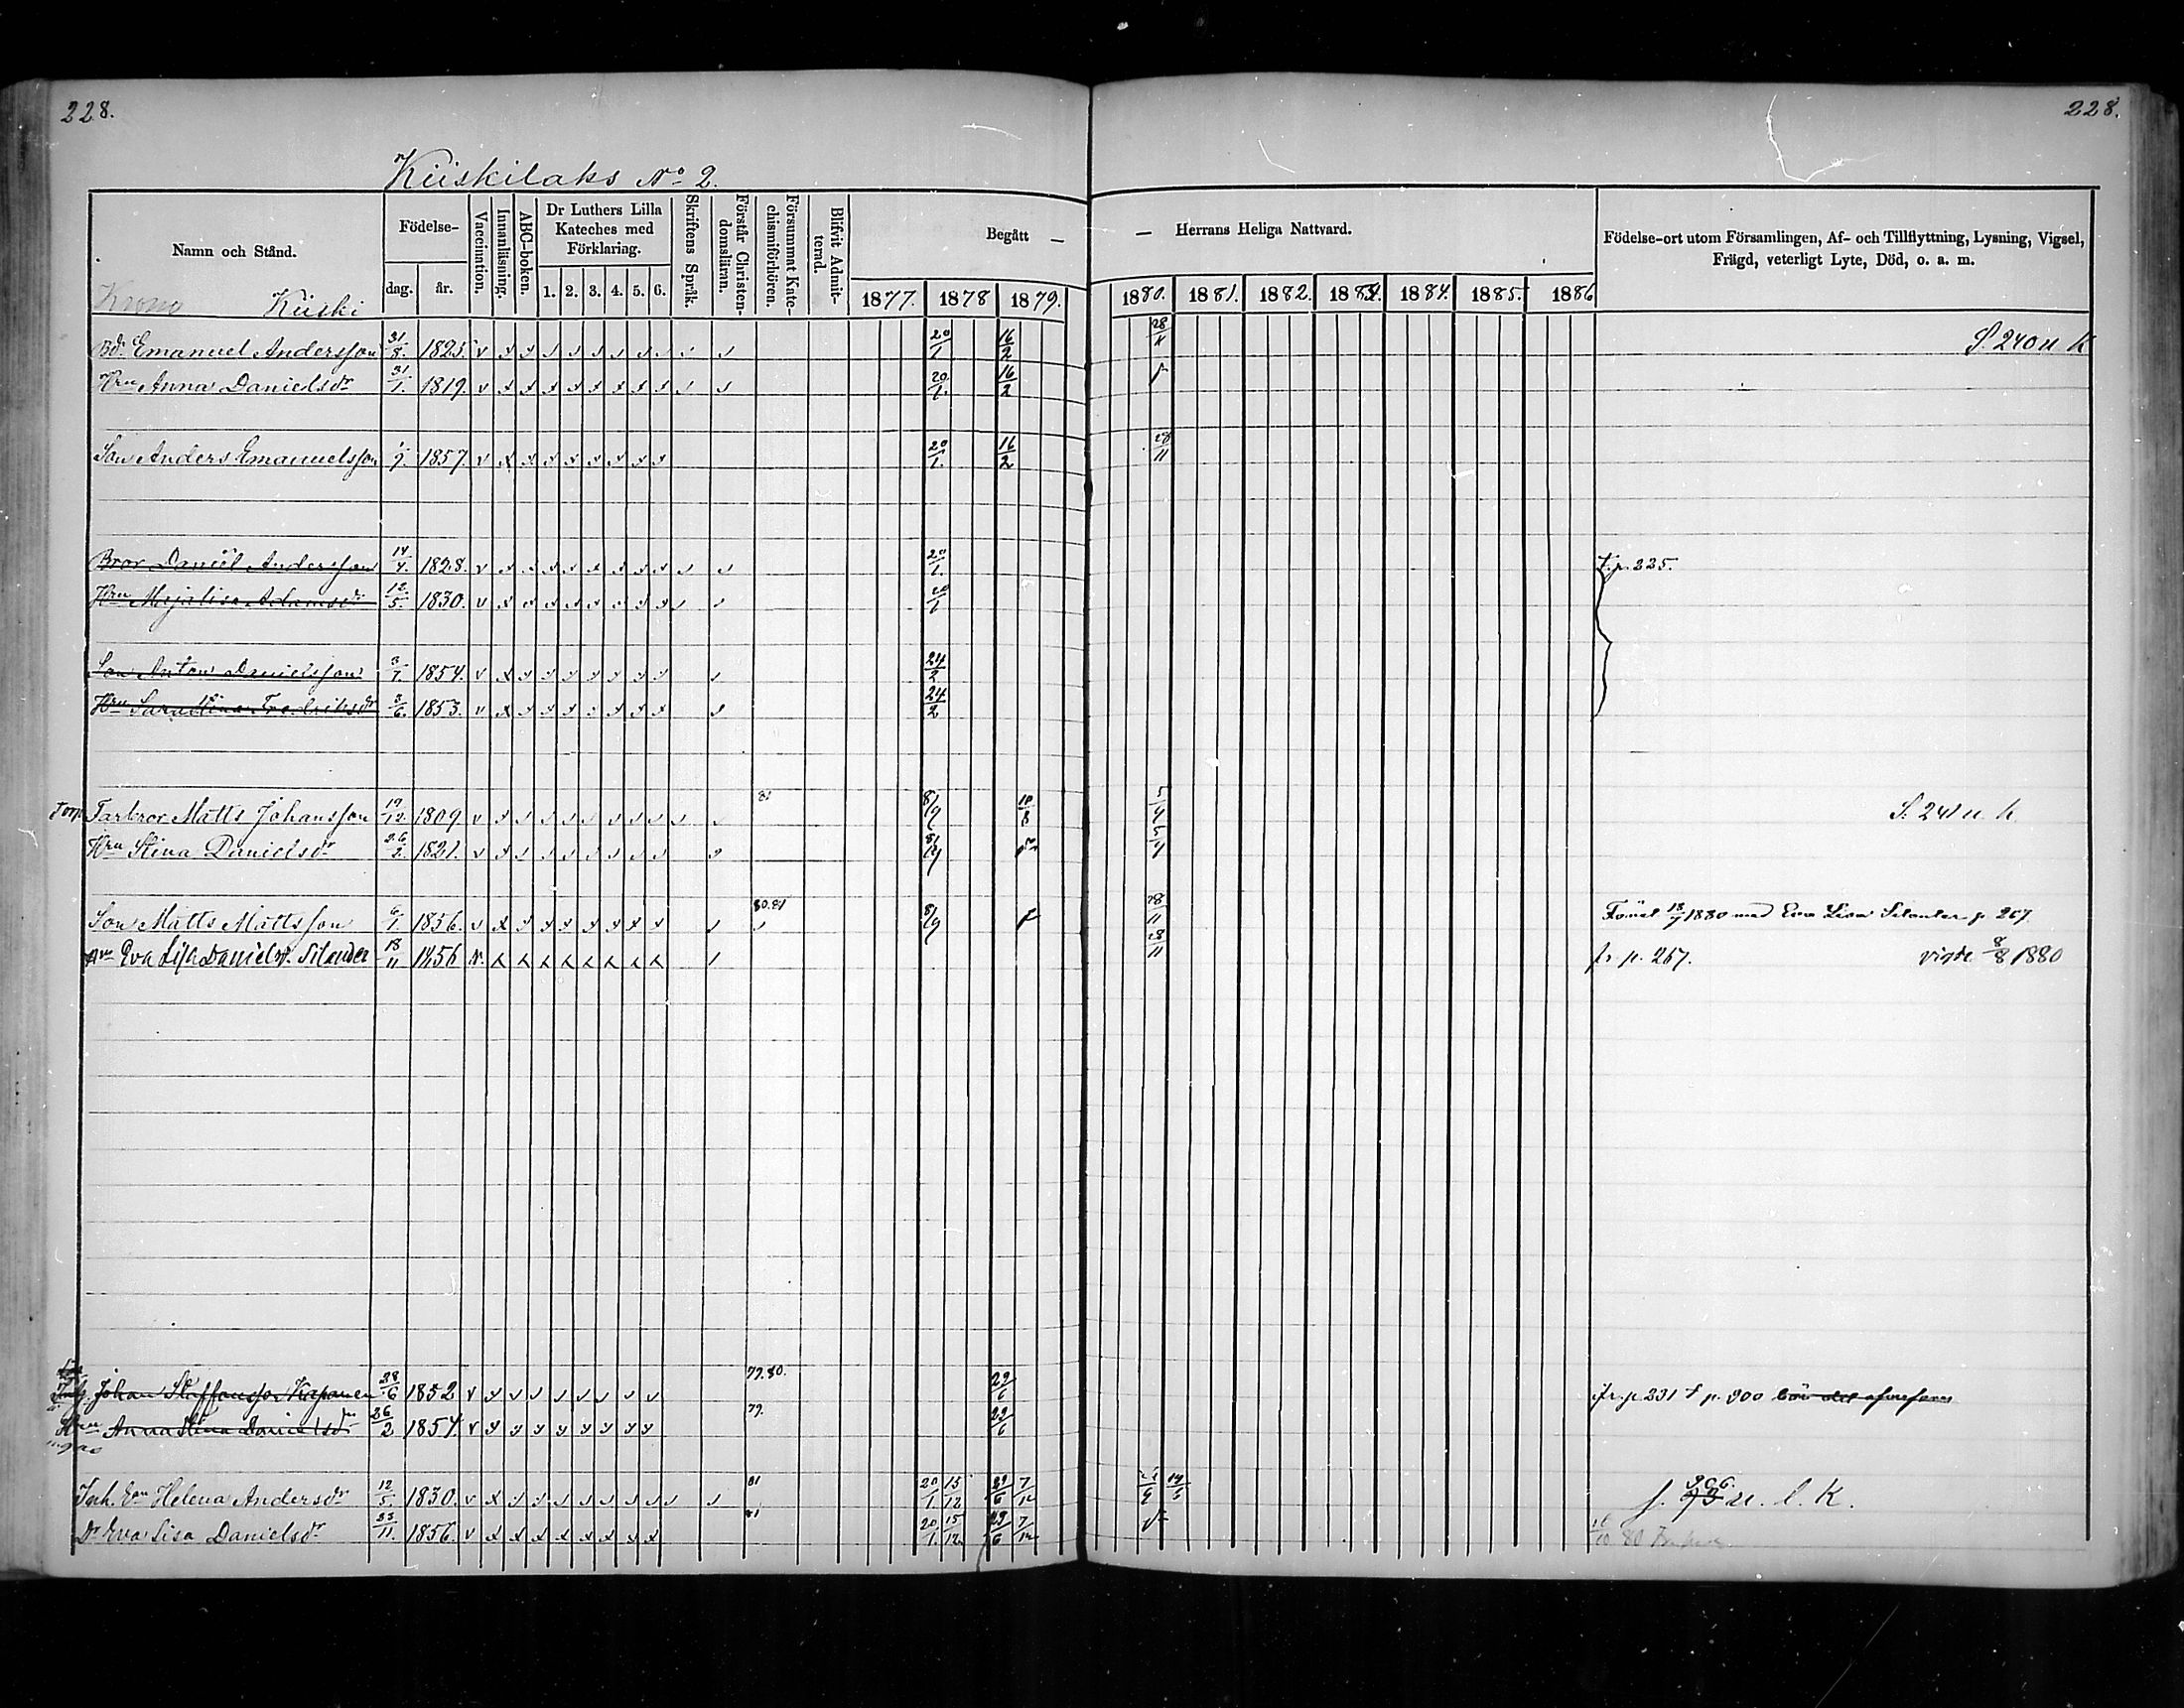 228. 228.
Kiiskilaks No 2.
Namn och Stånd. Födelse- dag. år. Vaccination. Innanläsning. ABC-boken. Dr Luthers Lilla Kateches med Förklaring. 1. 2. 3. 4. 5. 6. Skriftens Språk. Förstår Christendomsläran. Försummat Katechismiförhören. Blifvit Admitterad. Begått — — Herrans Heliga Nattvard. Födelse-ort utom Församlingen, Af- och Tillflyttning, Lysning, Vigsel, Frägd, veterligt Lyte, Död, o. a. m.
1877. 1878 1879. 1880. 1881. 1882. 1884. 1885. 1886
Krono Kiiski
Bd. Emanuel Andersson 31/8. 1825. 20/1 16/2 S. 240 n K
Hru Anna Danielsdr 31/1. 1819. 20/1. 16/2
Son Anders Emanuelsson 1857. 20/1. 16/2 28/11
Bror Daniel Andersson 14/4. 1828. 20/1. t. p. 225.
Hru Majalisa Adamsdr 12/5. 1830. 20/1
Son Anton Danielsson 1854. 24/2
Hru Sarastina Fredriksdr 3/6. 1853. 24/2
Torp Farbror Matts Johansson 19/12. 1809 81 8/9 10/8 5/9 S. 241 n. k
Hru Stina Danielsdr 26/2. 1821. 8/9
Son Matts Mattsson 6/1. 1856. 80.81 8/9 28/11 1880 med Eva Lisa Silander p 267
Hru Eva Lisa Danielsdr. Silander 18/11 1856 28/11 fr. p. 267. vigde 8/8 1880
Johan Staffansson Kapanen 28/6 1852 79.80. 29/6 fr. p. 231 t p. 300
Hru Anna Stina Danielsdr 26/2 1854. 79. 29/6
Inh. Helena Andersdr 12/5. 1830. 81 20/1. 15/12 29/6 7/12 f. 306. n. l. K.
Dr Eva Lisa Danielsdr 1856. 81 20/1. 15/12. 29/6 7/12